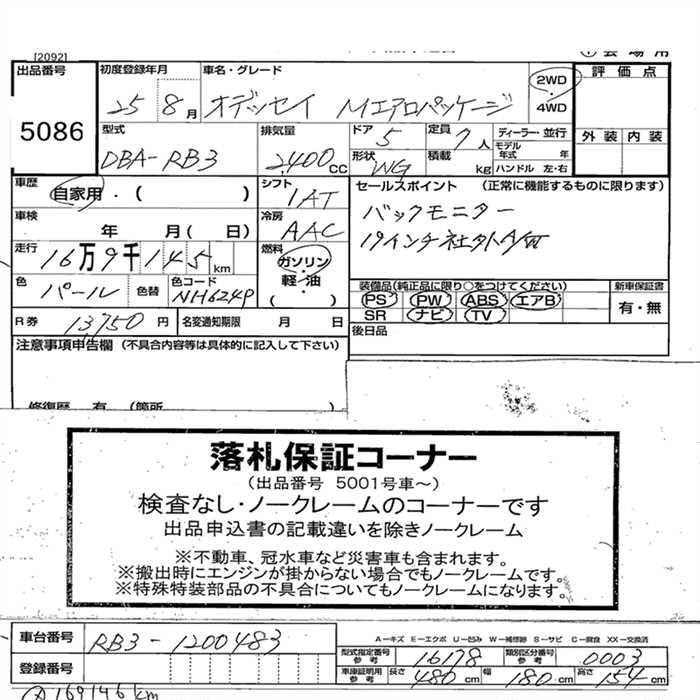 [2092]
出品番号 5086
初度登録年月 25 8月
車名・グレード オデッセイ Mエアロパッケージ
2WD
4WD
評価点
外装 内装
型式 DBA-RB3
排気量 2400CC
ドア 5
定員 7人
ディーラー・並行
形状 WG
積載 kg
モデル年式 年
ハンドル 左・右
車歴 自家用・( )
シフト IAT
セールスポイント (正常に機能するものに限ります)
バックモニター
19インチ社外A/W
車検 年 月( 日)
冷房 AAC
走行 16万9千145km
燃料 ガソリン・軽油・( )
色 パール
色替
色コード NH624P
装備品(純正品に限り○をつけてください)
PS PW ABS エアB
SR ナビ TV
新車保証書
有・無
R券 13,750円
名変通知期限 月 日
後日品
注意事項申告欄 (不具合内容等は具体的に記入して下さい)
修復歴 有 (箇所
落札保証コーナー
(出品番号 5001号車～)
検査なし・ノークレームのコーナーです
出品申込書の記載違いを除きノークレーム
※不動車、冠水車など災害車も含まれます。
※搬出時にエンジンが掛からない場合でもノークレームです。
※特殊特装部品の不具合についてもノークレームになります。
車台番号 RB3-1200483
A－キズ E－エクボ U－凹み W－補修跡 S－サビ C－腐食 XX－交換済
型式指定番号 参考 16178
類別区分番号 参考 0003
登録番号
車庫証明用 参考 長さ 480cm 幅 180cm 高さ 154cm
169146km